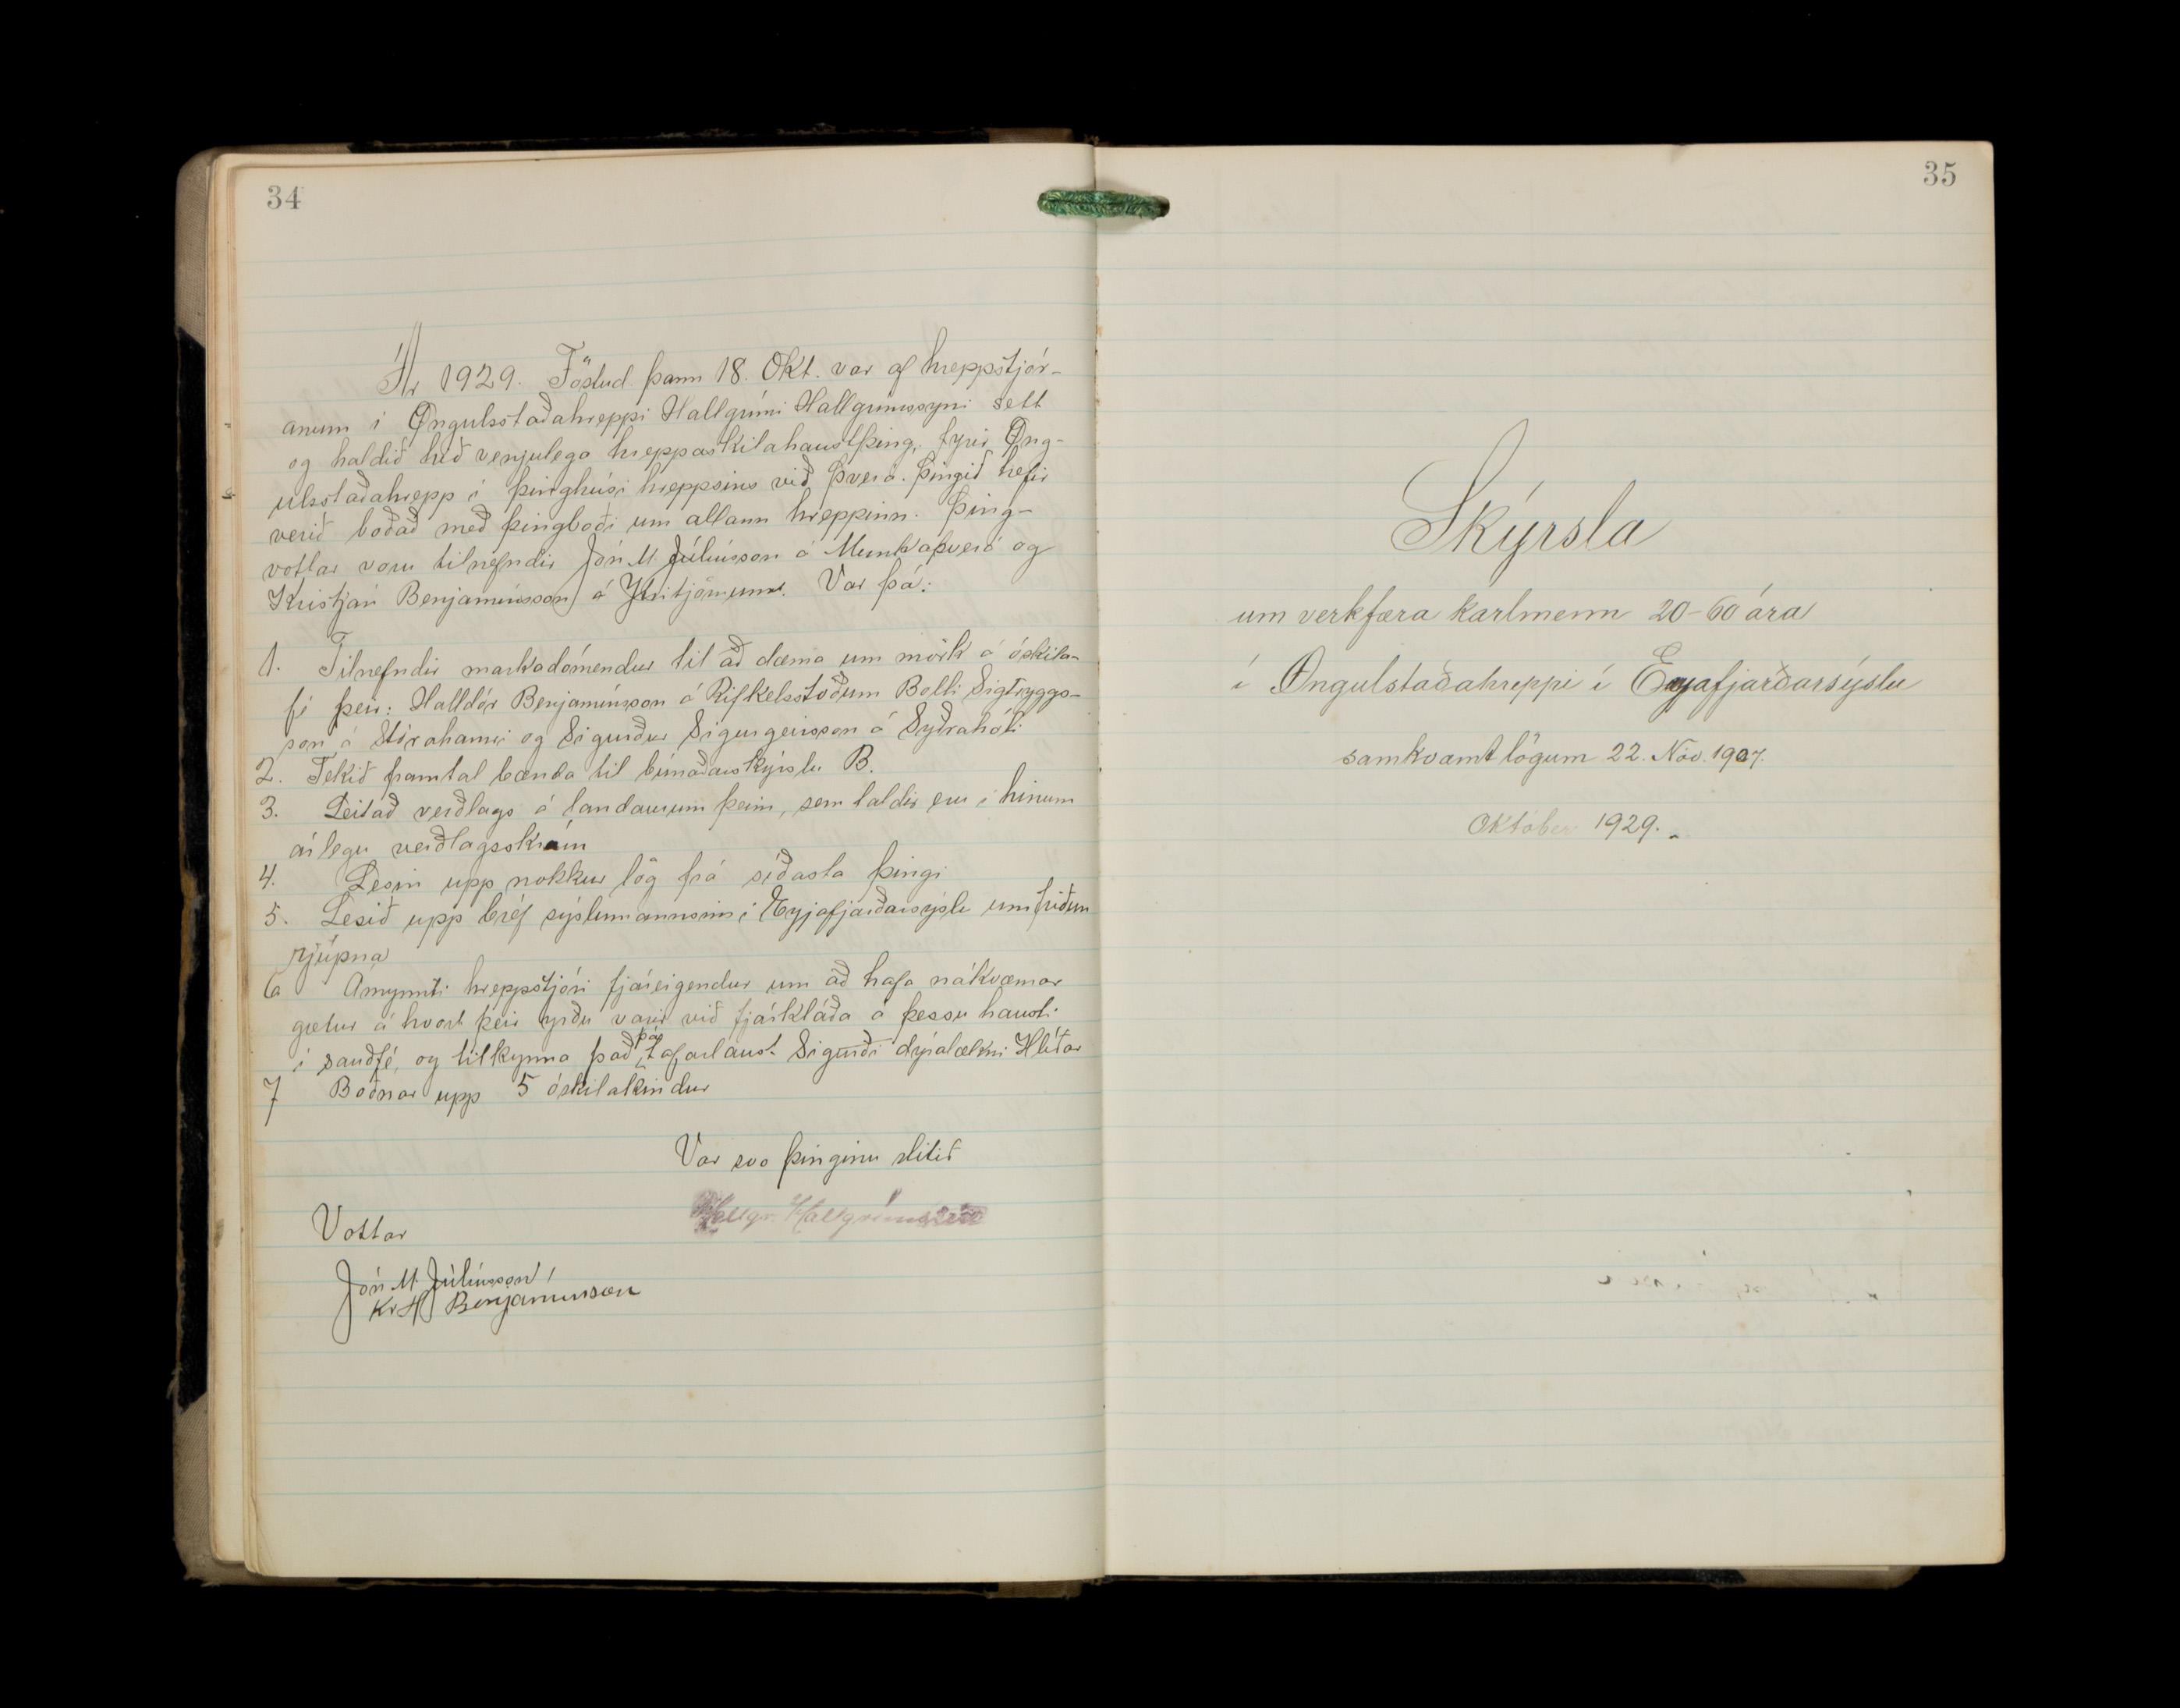 34
Ár 1929. Föstud. þann 18. Okt. var af hreppstjór-
anum í Öngulsstaðahreppi Hallgrími Hallgrímssyni sett
og haldið hið venjulega hreppaskilahaustþing, fyrir Öng-
ulsstaðahrepp í þinghúsi hreppsins við Þverá. Þingið hefir
verið boðað með þingboði um allann hreppinn. Þing-
vottar voru tilnefndir Jón M Júlíusson á Munkaþverá og
Kristján Benjamínsson á Ytritjörnum. Var þá:
1. Tilnefndir markadómendur til að dæma um mörk á óskila-
fé þeir: Halldór Benjamínsson á Rifkelsstöðum Bolli Sigtryggs-
son á Stórahamri og Sigurður Sigurgeirsson á Sytrahóli
2. Tekið framtal bænda til búnaðarskýrslu B.
3. Leitað verðlags á landaurum þeim, sem taldir eru í hinum
árlegu verðlagsskrám
4. Lesin upp nokkur lög frá síðasta þingi
5. Lesið upp bréf sýslumannsins í Eyjafjarðarsýslu um friðun
rjúpna
6 Áminnti hreppstjóri fjáreigendur um að hafa nákvæmar
gætur á hvort þeir yrðu varir við fjárkláða á þessu hausti
í sauðfé, og tilkynna það þá tafarlaust Sigurði dýralækni Hlíðar
7 Boðnar upp 5 óskilakindur
Var svo þinginu slitið
Hallgr. Hallgrímsson
Vottar
Jón M. Júlíusson
Kr H Benjamínsson
35
Skýrsla
um verkfæra karlmenn 20-60 ára
í Öngulstaðahreppi í Eyjafjarðarsýslu
samkvæmt lögum 22. Nóv. 1907.
Október 1929.